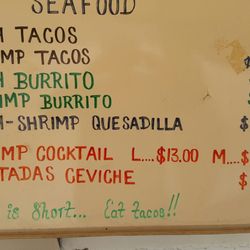 SEAFOOD
H TACOS
IMP TACOS $
H BURRITO
RIMP BURRITO $
H-SHRIMP QUESADILLA $
IMP COCKTAIL L....$13.00 M....$
TADAS CEVICHE $
is Short... Eat tacos!!